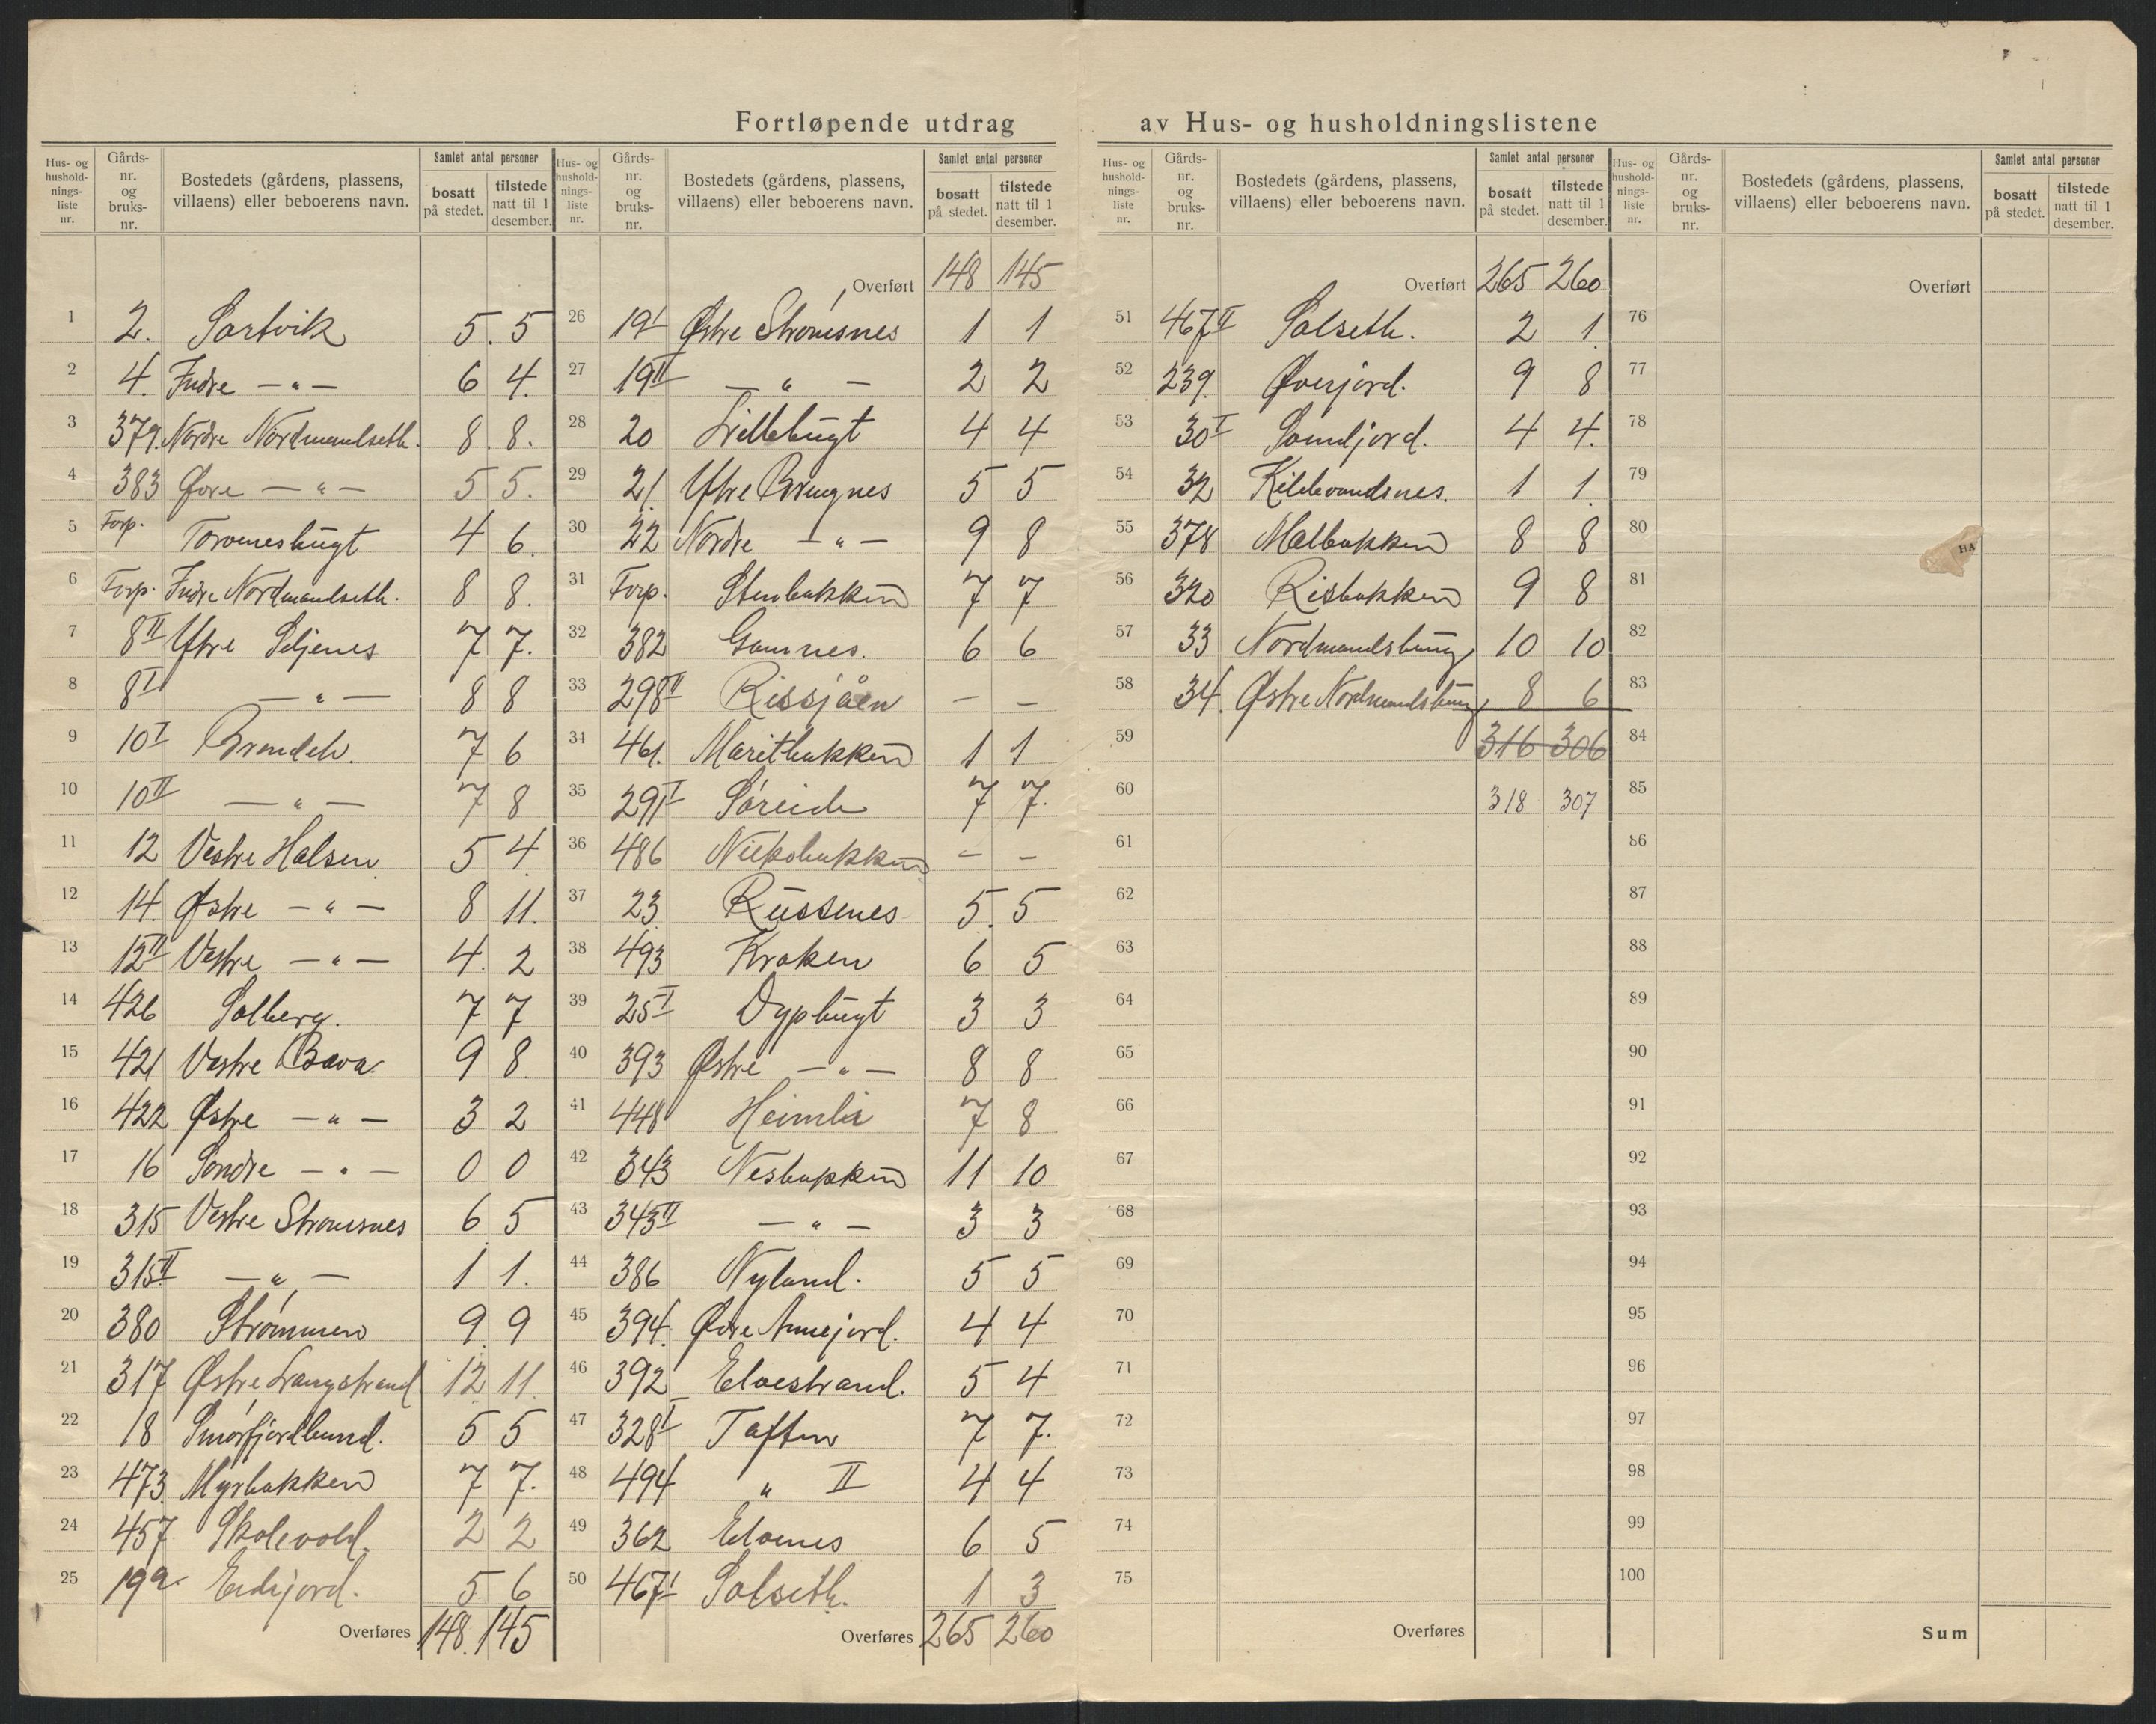 Fortløpende utdrag av Hus- og husholdningslistene
Hus- og husholdningsliste nr. Gårdsnr. og bruksnr. Bostedets (gårdens, plassens, villaens) eller beboerens navn. Samlet antal personer bosatt på stedet. tilstede natt til 1 desember.
1 2. Sartvik 5. 5
2 4. Indre — " — 6 4.
3 379. Nordre Nordmandseth. 8. 8.
4 383 Øvre — " — 5 5.
5 Forp. Torvenesbugt 4 6.
6 Forp. Indre Nordmandseth. 8 8.
7 8 II Ytre Seljenes 7 7.
8 8 I — " — 8 8
9 10 I Brendeh. 7 6
10 10 II — " — 7 8
11 12 Vestre Halsen 5 4.
12 14. Østre — " — 8 11.
13 12 II Vestre — " — 4. 2
14 426 Solberg. 7 7
15 421 Vestre Bava 9 8.
16 422 Østre — " — 3 2
17 16 Søndre — " — 0 0
18 315 Vestre Strømsnes 6 5
19 315 II — " — 1 1.
20 380 Strømmen 9 9
21 317 Østre Langstrand 12 11.
22 18 Smørfjordbund. 5 5
23 473. Myrbakken 7 7.
24 457 Skolevold. 2 2
25 19a. Eidsjord. 5 6
Overføres 148. 145
Hus- og husholdningsliste nr. Gårdsnr. og bruksnr. Bostedets (gårdens, plassens, villaens) eller beboerens navn. Samlet antal personer bosatt på stedet. tilstede natt til 1 desember.
Overført 148 145
26 19 I Østre Strømsnes 1 1
27 19 II — " — 2 2
28 20 Lillebugt 4 4
29 21. Ytre Brengnes 5 5
30 22 Nordre — " — 9 8
31 Forp. Stenbakken 7 7
32 382 Gamnes. 6 6
33 298 II Rissjåen — —
34 461. Maritbakken 1 1
35 291 I Søreide 7 7.
36 486 Niiksbakken — —
37 23 Russenes 5. 5
38 493 Kroken 6 5
39 25 I Dypbugt 3 3
40 393 Østre — " — 8 8
41 448 Heimli 7 8
42 343 Nesbakken 11 10
43 343 II — " — 3 3
44 386 Nyland. 5 5
45 394. Øvre Annejord. 4 4
46 392 Elvestrand. 5 4
47 328 I Toften 7 7.
48 494 " II 4 4
49 362 Elvenes 6 5
50 467 I Solseth. 1 3
Overføres 265 260
Hus- og husholdningsliste nr. Gårdsnr. og bruksnr. Bostedets (gårdens, plassens, villaens) eller beboerens navn. Samlet antal personer bosatt på stedet. tilstede natt til 1 desember.
Overført 265 260
51 467 II Solseth. 2 1
52 239. Øverjord. 9 8
53 30 I Sandjord. 4 4.
54 32 Kildevandsnes. 1 1.
55 378 Melbakken 8 8
56 320 Risbakken 9 8
57 33 Nordmandsbung 10 10
58 34. Østre Nordmandsbung 8 6
59 316 306
60 318 307
61
62
63
64
65
66
67
68
69
70
71
72
73
74
75
Overføres
Hus- og husholdningsliste nr. Gårdsnr. og bruksnr. Bostedets (gårdens, plassens, villaens) eller beboerens navn. Samlet antal personer bosatt på stedet. tilstede natt til 1 desember.
Overført
76
77
78
79
80
HA
81
82
83
84
85
86
87
88
89
90
91
92
93
94
95
96
97
98
99
100
Sum